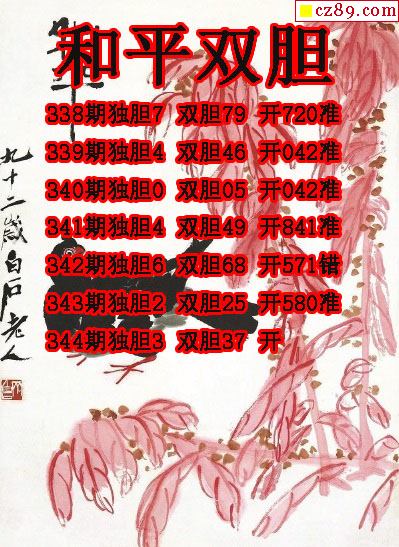 cz89.com
和平双胆
338期独胆7 双胆79 开720准
339期独胆4 双胆46 开042准
340期独胆0 双胆05 开042准
341期独胆4 双胆49 开841准
342期独胆6 双胆68 开571错
343期独胆2 双胆25 开580准
344期独胆3 双胆37 开
九十二岁白石老人